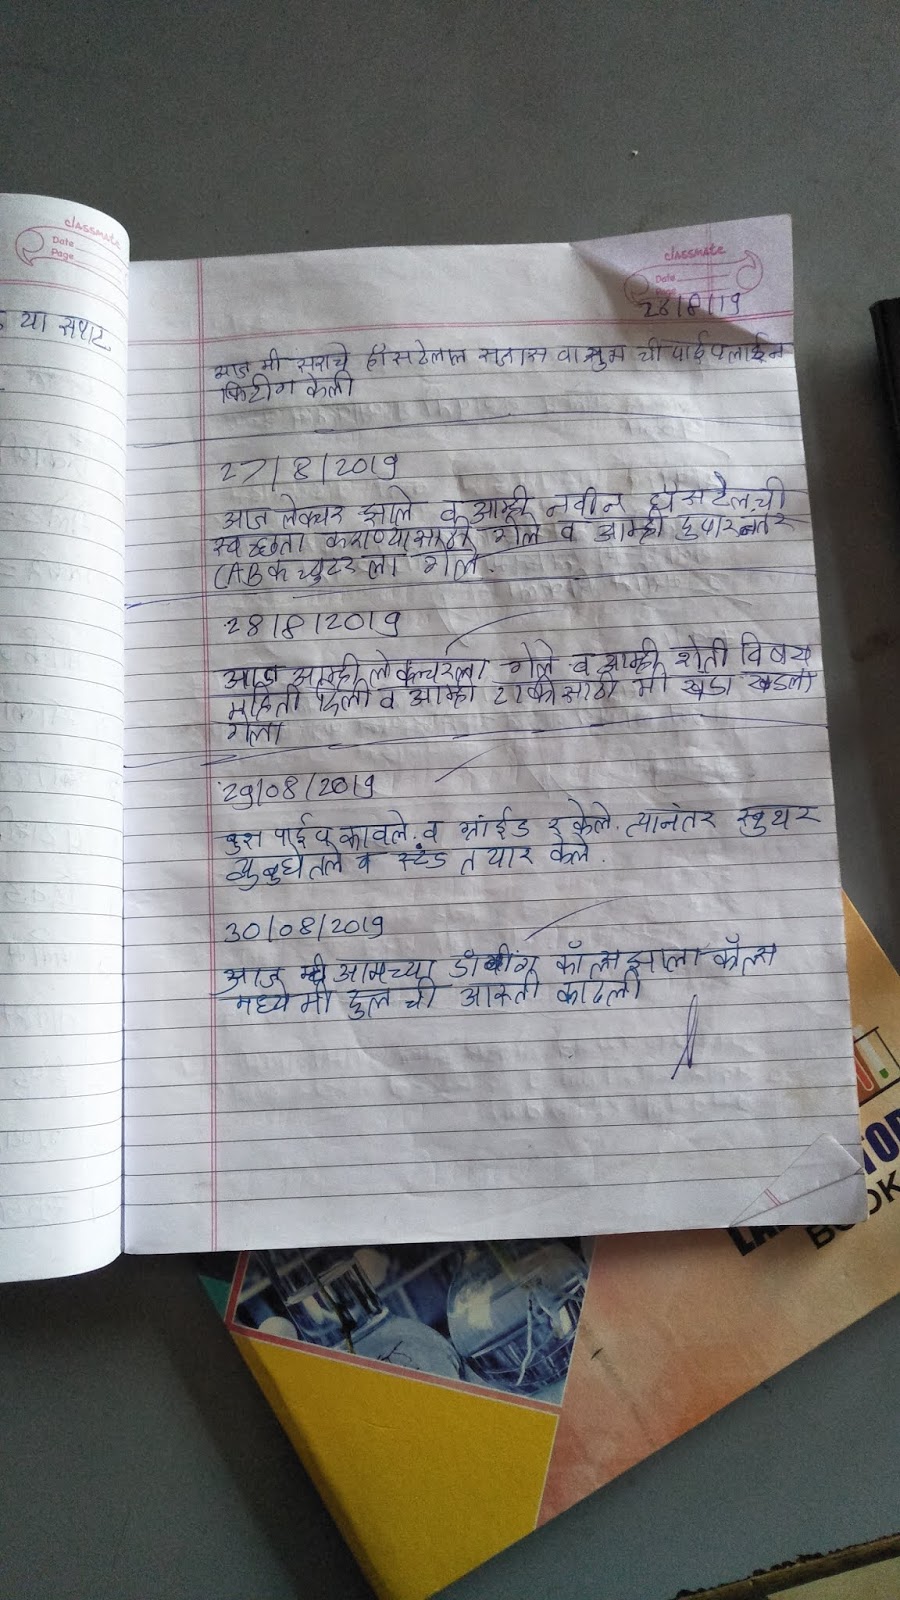 classmate
Date
Page
या सथट
classmate
Date
Page
26/8/19
आज मी सराचे हॉसटेलाल सडास बाथरूम ची पाईपलाईन
फिटींग केली
27/8/2019
आज लेक्चर झाले व आम्ही नवीन हॉसटेलची
स्वच्छता कराण्यासाठी गेले व आम्ही दुपारनंतर
LAB कंप्युटर ला गेले.
28/8/2019
आज आम्ही लेक्चरला गेले व आम्ही शेती विषय
महिती दिली व आम्ही टाकीसाठी मी खडा खडला
गेला
29/08/2019
पाईप कापले. व ग्राईड र केले. त्यानंतर
घेतले व स्टंड तयार केले.
30/08/2019
आज मी आमच्या डॉईंग कॉल्स झाला कॉल्स
मध्ये मी दुल ची आकती काढली
BOOK